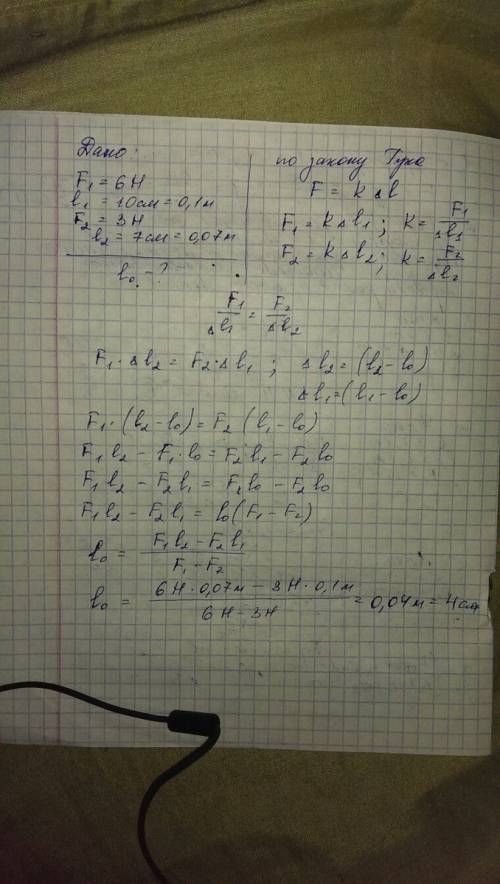 Дано:
F₁ = 6Н
l₁ = 10см = 0,1м
F₂ = 3Н
l₂ = 7см = 0,07м
l₀ - ?
по закону Гука
F = k Δl
F₁ = k Δl₁ ; k = F₁/Δl₁
F₂ = k Δl₂ ; k = F₂/Δl₂
F₁/Δl₁ = F₂/Δl₂
F₁ · Δl₂ = F₂ · Δl₁ ; Δl₂ = (l₂ - l₀)
Δl₁ = (l₁ - l₀)
F₁ · (l₂ - l₀) = F₂ (l₁ - l₀)
F₁ l₂ - F₁ · l₀ = F₂ l₁ - F₂ l₀
F₁ l₂ - F₂ l₁ = F₁ l₀ - F₂ l₀
F₁ l₂ - F₂ l₁ = l₀ (F₁ - F₂)
l₀ = (F₁ l₂ - F₂ l₁)/(F₁ - F₂)
l₀ = (6Н · 0,07м - 3Н · 0,1м)/(6Н - 3Н) = 0,04м = 4см